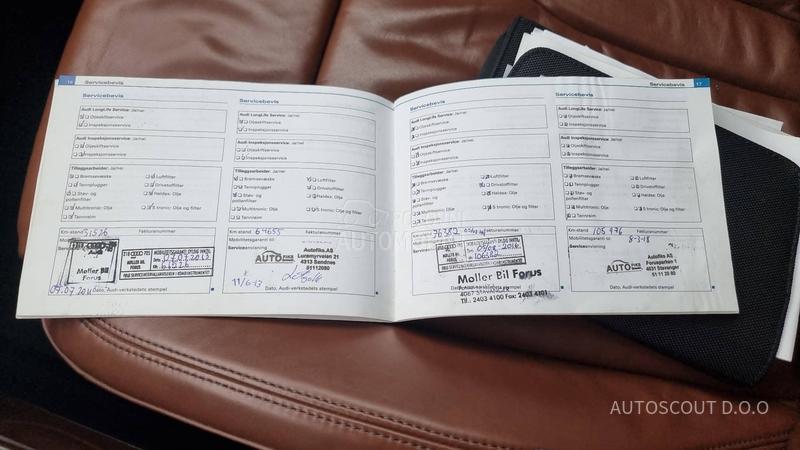 16 Servicebevis
Servicebevis
Audi LongLife Service: Ja/nei
Oljeskiftservice
Inspeksjonsservice
Audi Inspeksjonsservice: Ja/nei
Oljeskiftservice
Inspeksjonsservice
Tilleggsarbeider: Ja/nei
Bremsevæske
Luftfilter
Tennplugger
Drivstoffilter
Støv- og pollenfilter
Haldex: Olje
Multitronic: Olje
S tronic: Olje og filter
Tannreim
Km-stand 31526 Fakturanummer
Møller Bil
Forus
Dato, Audi-verkstedets stempel
Servicebevis
Audi LongLife Service: Ja/nei
Oljeskiftservice
Inspeksjonsservice
Audi Inspeksjonsservice: Ja/nei
Oljeskiftservice
Inspeksjonsservice
Tilleggsarbeider: Ja/nei
Bremsevæske
Luftfilter
Tennplugger
Drivstoffilter
Støv- og pollenfilter
Haldex: Olje
Multitronic: Olje
S tronic: Olje og filter
Tannreim
Km-stand 64655 Fakturanummer
Mobilitetsgaranti til:
Serviceanvisning
AUTOFIKS
Autofiks AS
Luramyrveien 21
4313 Sandnes
51112080
11/6-13
Dato, Audi-verkstedets stempel
Servicebevis 17
Servicebevis
Audi LongLife Service: Ja/nei
Oljeskiftservice
Inspeksjonsservice
Audi Inspeksjonsservice: Ja/nei
Oljeskiftservice
Inspeksjonsservice
Tilleggsarbeider: Ja/nei
Bremsevæske
Luftfilter
Tennplugger
Drivstoffilter
Støv- og pollenfilter
Haldex: Olje
Multitronic: Olje
S tronic: Olje og filter
Tannreim
Km-stand 76382
Mobilitetsgaranti til:
Møller Bil Forus
4067 STAVANGER
Tlf.: 2403 4100 Fax: 2403 4101
Servicebevis
Audi LongLife Service: Ja/nei
Oljeskiftservice
Inspeksjonsservice
Audi Inspeksjonsservice: Ja/nei
Oljeskiftservice
Inspeksjonsservice
Tilleggsarbeider: Ja/nei
Bremsevæske
Luftfilter
Tennplugger
Drivstoffilter
Støv- og pollenfilter
Haldex: Olje
Multitronic: Olje
S tronic: Olje og filter
Tannreim
Km-stand 105 976 Fakturanummer
Mobilitetsgaranti til:
8-3-18
Serviceanvisning
AUTOFIKS
Autofiks AS
Forusparken 1
4031 Stavanger
51 11 20 80
Dato, Audi-verkstedets stempel
AUTOSCOUT D.O.O